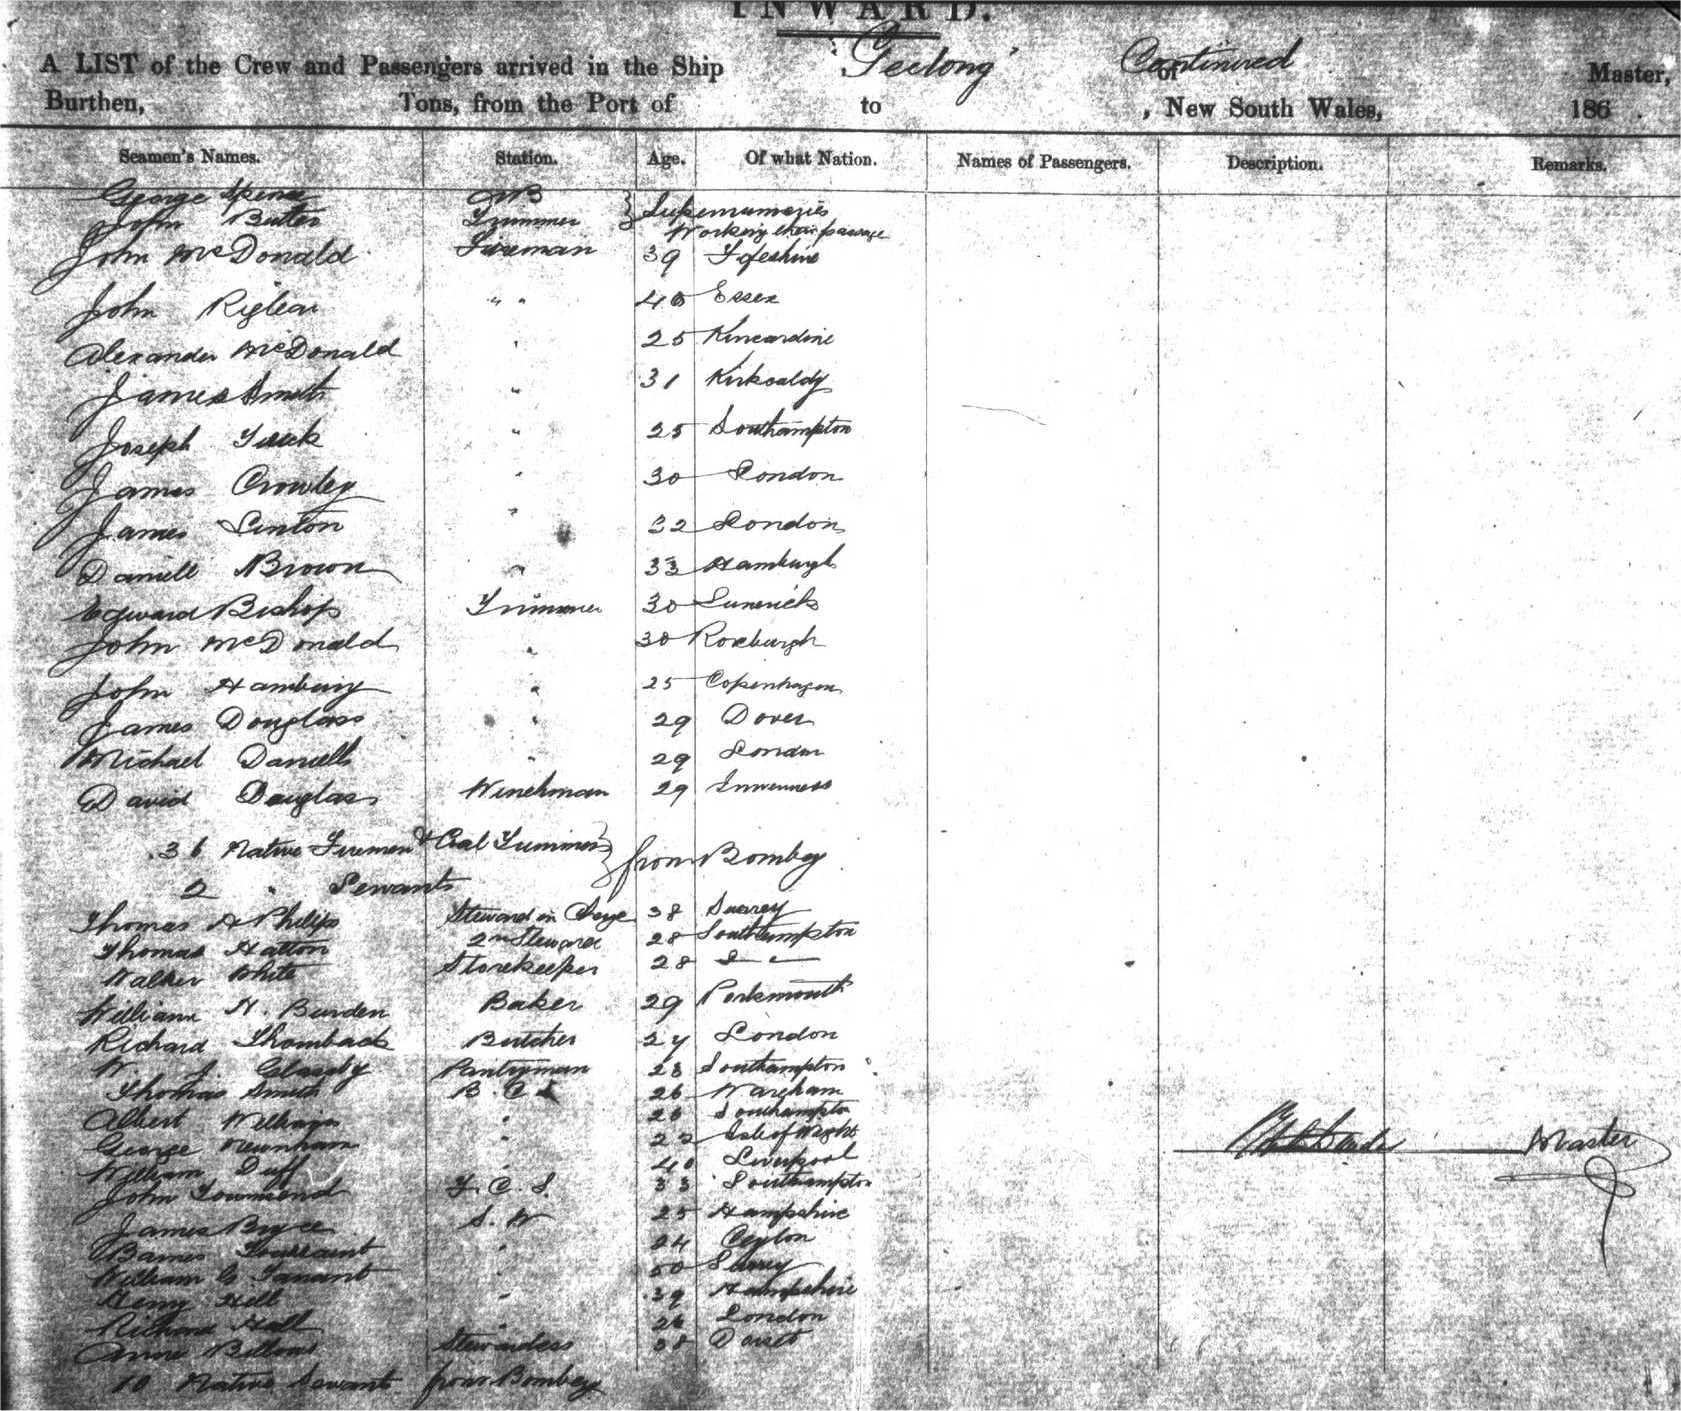 INWARD.
A LIST of the Crew and Passengers arrived in the Ship "Geelong" Continued of Master,
Burthen, Tons, from the Port of to , New South Wales, 186 .
Seamen's Names. Station. Age. Of what Nation. Names of Passengers. Description. Remarks.
George Spence AB } Supernumeries
John Butler Trimmer } Working their passage
John McDonald Fireman 39 Fifeshire
John " " 40 Essex
Alexander McDonald " 25 Kincardine
James Smith " 31 Kirkcaldy
Joseph " 25 Southampton
James Crowley " 30 London
James Linton " 32 London
Daniell Brown " 33 Hamburgh
Edward Bishop Trimmer 30 Limerick
John McDonald " 30 Roxburgh
John " 25 Copenhagen
James Douglass " 29 Dover
Michael Daniells " 29 London
David Douglass Winchman 29 Inverness
36 Native Firemen & Coal Trimmers } from Bombay
2 " Servants
Thomas H Philips Steward in Chge 38 Surrey
Thomas Hatton 2nd Steward 28 Southampton
Walter White Storekeeper 28
William H. Burden Baker 29 Portsmouth
Richard Thomback Butcher 27 London
W. J. Glassby Pantryman 28 Southampton
Thomas Smith B. C. S 26 Wareham
Albert William " 26 Southampton
George Newnham " 22 Isle of Wight
William Duff " 40 Liverpool
John Townsend F. C. S. 33 Southampton
James Bryce S. W 25 Hampshire
Toussaint " 24 Ceylon
William G. Tanant " 50 Surrey
Henry Hell " 39 Hampshire
Richard Hall " 26 London
Anne Stewardess 38 Dorset
10 Native Servants from Bombay
Master